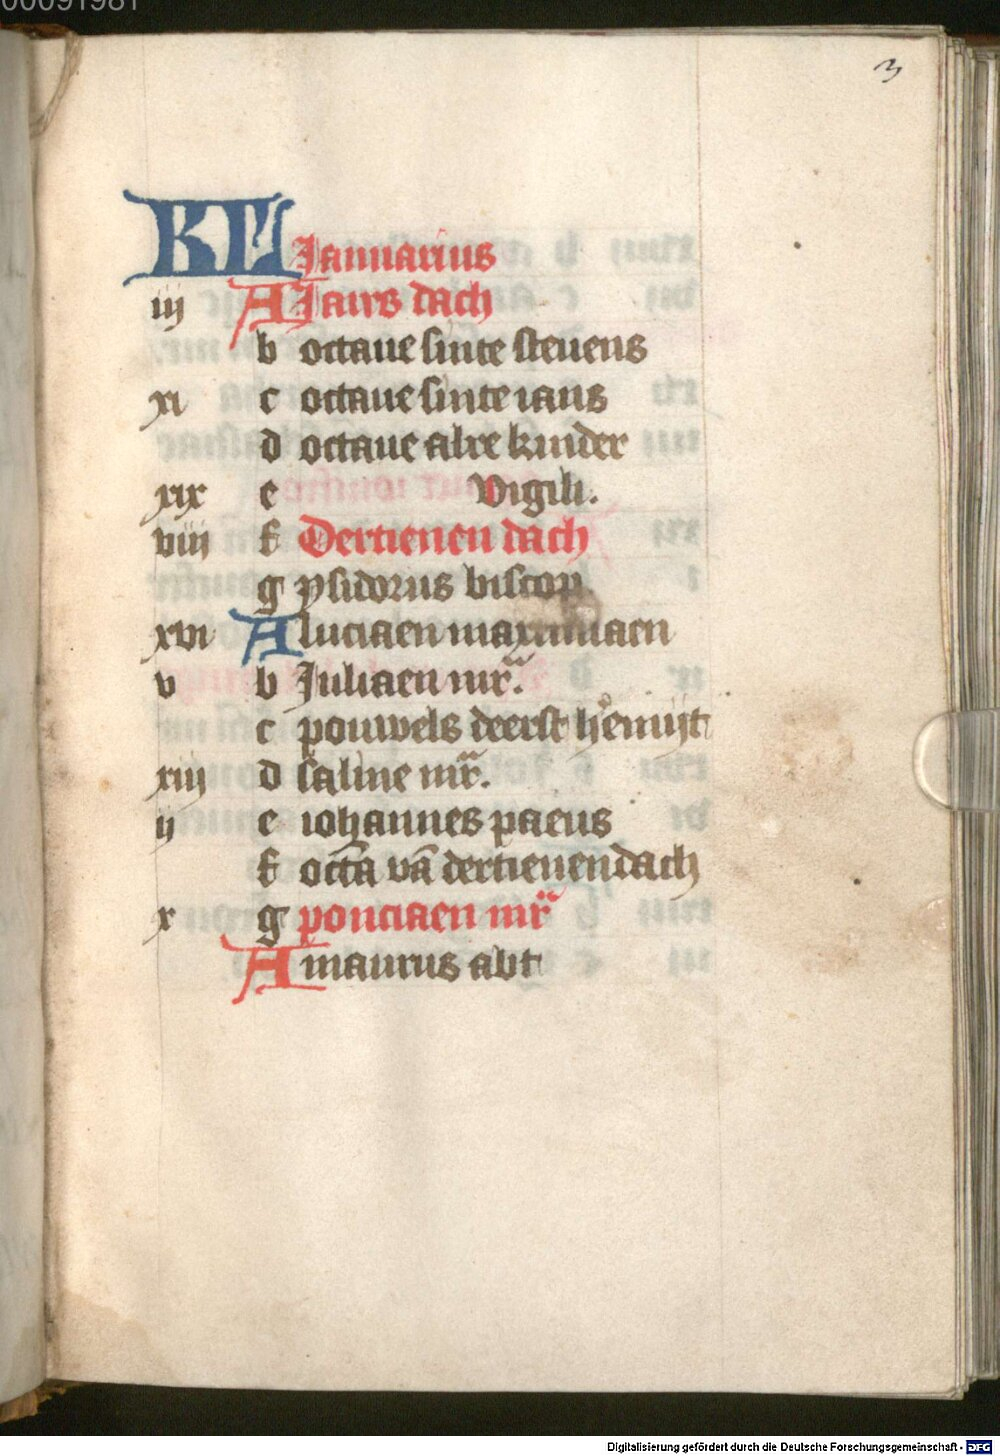 00091981
3
KL Januarius
iij A Jairs dach
b octaue sinte steuens
xi c octaue sinte ians
d octaue alre kinder
xix e Vigili.
viij f Dertienen dach
g ysidorus biscop.
xvi A luciaen maximiaen
v b Juliaen mr̃.
c pouwels deerst hemijt
xiij d saluie mr̃.
ij e iohannes paeus
f octã vã dertienendach
x g ponciaen mr̃
A maurus abt
Digitalisierung gefördert durch die Deutsche Forschungsgemeinschaft - DFG